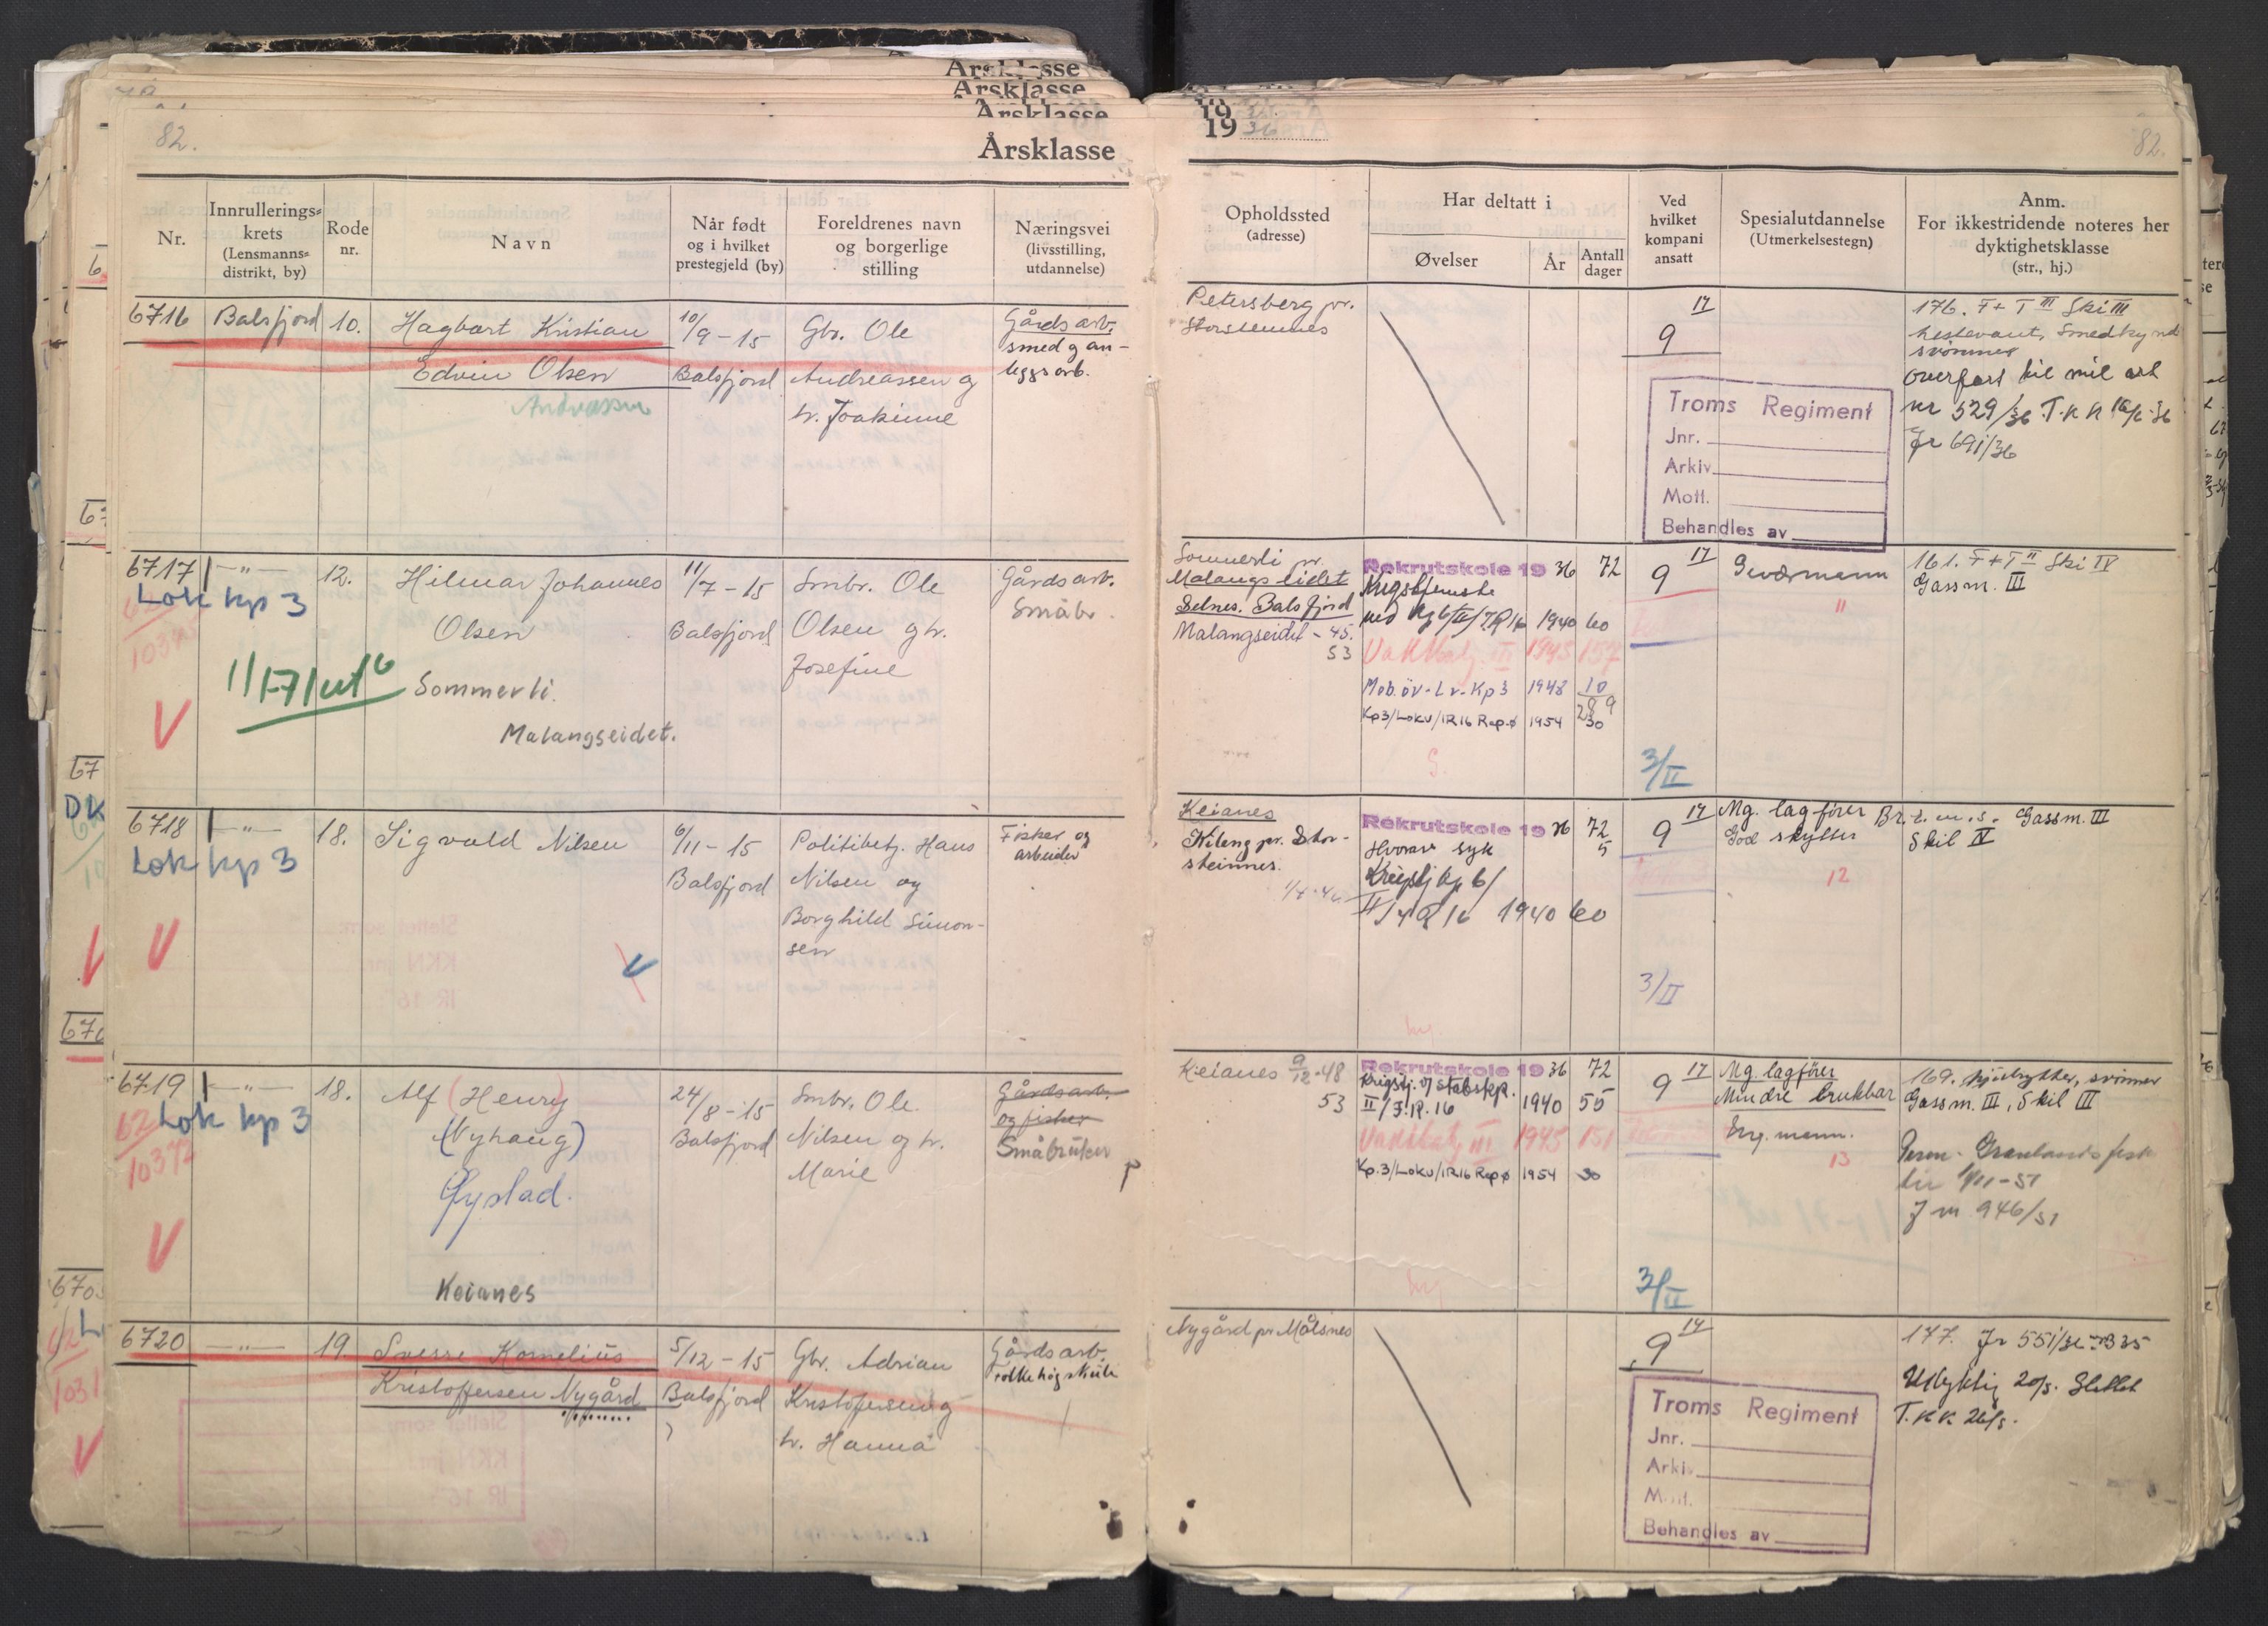 Årsklasse
Årsklasse
Årsklasse
Årsklasse
19 36
82.
82.
Nr.
Innrullerings-
krets
(Lensmanns-
distrikt, by)
Rode
nr.
Navn
Når født
og i hvilket
prestegjeld (by)
Foreldrenes navn
og borgerlige
stilling
Næringsvei
(livsstilling,
utdannelse)
Opholdssted
(adresse)
Har deltatt i
Øvelser
År
Antall
dager
Ved
hvilket
kompani
ansatt
Spesialutdannelse
(Utmerkelsestegn)
Anm.
For ikkestridende noteres her
dyktighetsklasse
(str., hj.)
6716 Balsfjord 10.
Hagbart Kristian
Edvin Olsen
10/9-15
Balsfjord
Gbr. Ole
Andreassen og
h. Joakime
Gårdsarb.
smed g an-
leggsarb.
Petersberg pr.
Storsteinnes
9 17
Troms Regiment
Jnr.
Arkiv
Mott.
Behandles av
176. F+T III Ski III
svømmer
Overført til mil arb
nr 529/36
Jr 691/36
6717 -"- 12.
Lok kp 3
Hilmar Johannes
Olsen
Sommerli.
Malangseidet.
11/7-15
Balsfjord
Smbr. Ole
Olsen g h.
Josefine
Gårdsarb.
Småbr.
Sommerli pr.
Malangseidet
Selnes. Balsfjord
Malangseidet - 45.
53
Rekrutskole 19 36 72
Krigstjeneste
1940 60
Vaktbatj. III 1945 157
Mob. öv - Lv - Kp 3 1948 10
289
Kp3/Lokv/IR16 Rep.ø 1954 30
9 17
3/II
Geværmann
11
161. F+T II Ski IV
Gassm. III
6718 -"- 18.
Lok kp 3
Sigvald Nilsen
6/11-15
Balsfjord
Politibetj. Hans
Nilsen og
Borghild Simon-
sen
Fisker og
arbeider
Keianes
Kileng pr. Stor-
steinnes.
Rekrutskole 19 36 72
Hvorav syk 5
1940 60
9 17
3/II
Mg. lagfører
God skytter
12
Gassm. III
Skil IV
6719 -"- 18.
Lok kp 3
62
Alf (Henry)
(Nyhaug)
Øystad.
Keianes
24/8-15
Balsfjord
Smbr. Ole
Nilsen og h.
Marie
Gårdsarb.
og fisker
Småbruker
Keianes 9/12-48
53
Rekrutskole 19 36 72
Krigstj. v/ stabskp.
II/I.R. 16 1940 55
Vaktbatj III 1945 151
Kp.3/Lokv/IR16 Rep ø 1954 30
9 17
3/II
Mg. lagfører
Mindre brukbar
mann.
13
169. svømmer
Gassm. III, Skil III
946/51
6720 -"- 19.
Sverre Kornelius
Kristoffersen Nygård
5/12-15
Balsfjord
Gbr. Adrian
Kristoffersen g
h. Hanna
Gårdsarb.
Folkehøgskule
Nygård pr Målsnes
9 17
Troms Regiment
Jnr.
Arkiv
Mott.
Behandles av
177.
Udyktig 20/5. Slettet
T.KK 26/5.